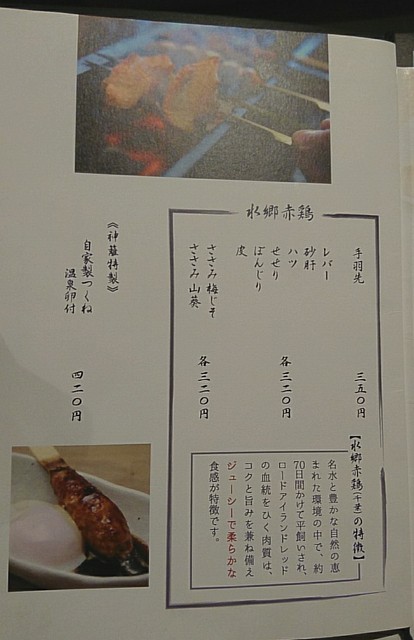 水郷赤鶏
手羽先 三五〇円
レバー
砂肝
ハツ
せせり
ぼんじり
皮
各三二〇円
ささみ梅じそ
ささみ山葵
各三二〇円
【水郷赤鶏(千葉)の特徴】
名水と豊かな自然の恵
まれた環境の中で、約
70日間かけて平飼いされ、
ロードアイランドレッド
の血統をひく肉質は、
コクと旨みを兼ね備え
ジューシーで柔らかな
食感が特徴です。
特製》
自家製つくね
温泉卵付
四二〇円